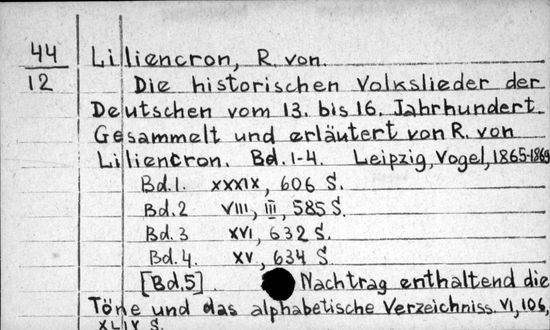 44
12
Liliencron, R. von.
Die historischen Volkslieder der
Deutschen vom 13. bis 16. Jahrhundert.
Gesammelt und erläutert von R. von
Liliencron. Bd. 1-4. Leipzig, Vogel, 1865-1869
Bd. 1. XXXIX, 606 S.
Bd. 2 VIII, III, 585 S.
Bd. 3 XVI, 632 S.
Bd. 4. XV, 634 S.
[Bd. 5] Nachtrag enthaltend die
Töne und das alphabetische Verzeichniss. VI, 106,
XLIV S.